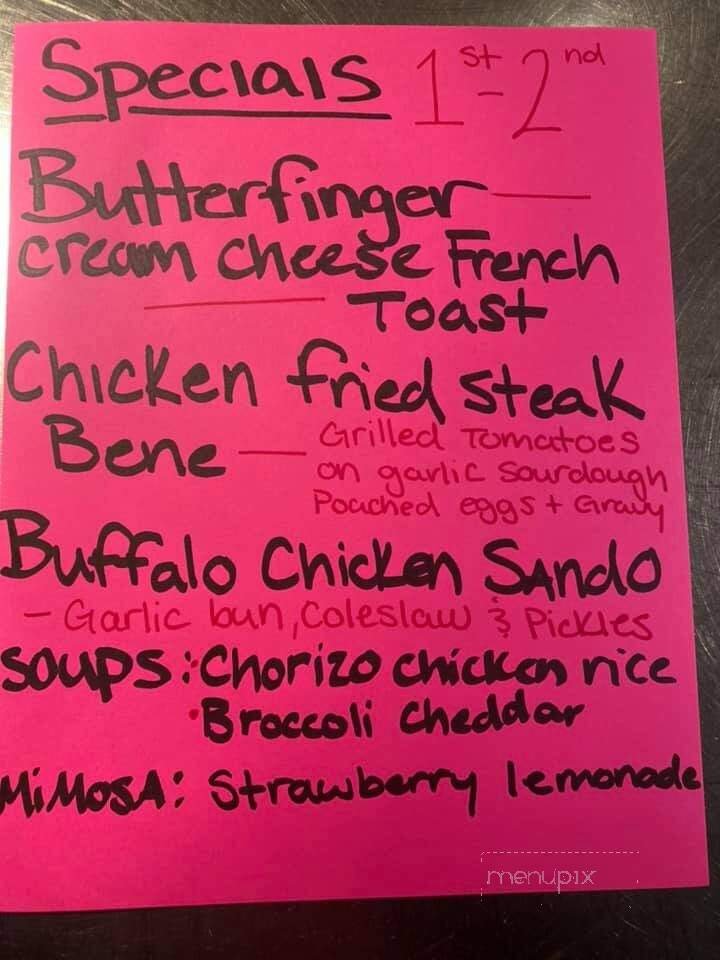 Specials 1st - 2nd
Butterfinger —
cream cheese French
— Toast
Chicken fried steak
Bene — Grilled Tomatoes
on garlic sourdough
Poached eggs + Gravy
Buffalo Chicken Sando
- Garlic bun, Coleslaw & Pickles
Soups: Chorizo chicken rice
• Broccoli cheddar
MiMosA: Strawberry lemonade
menupix